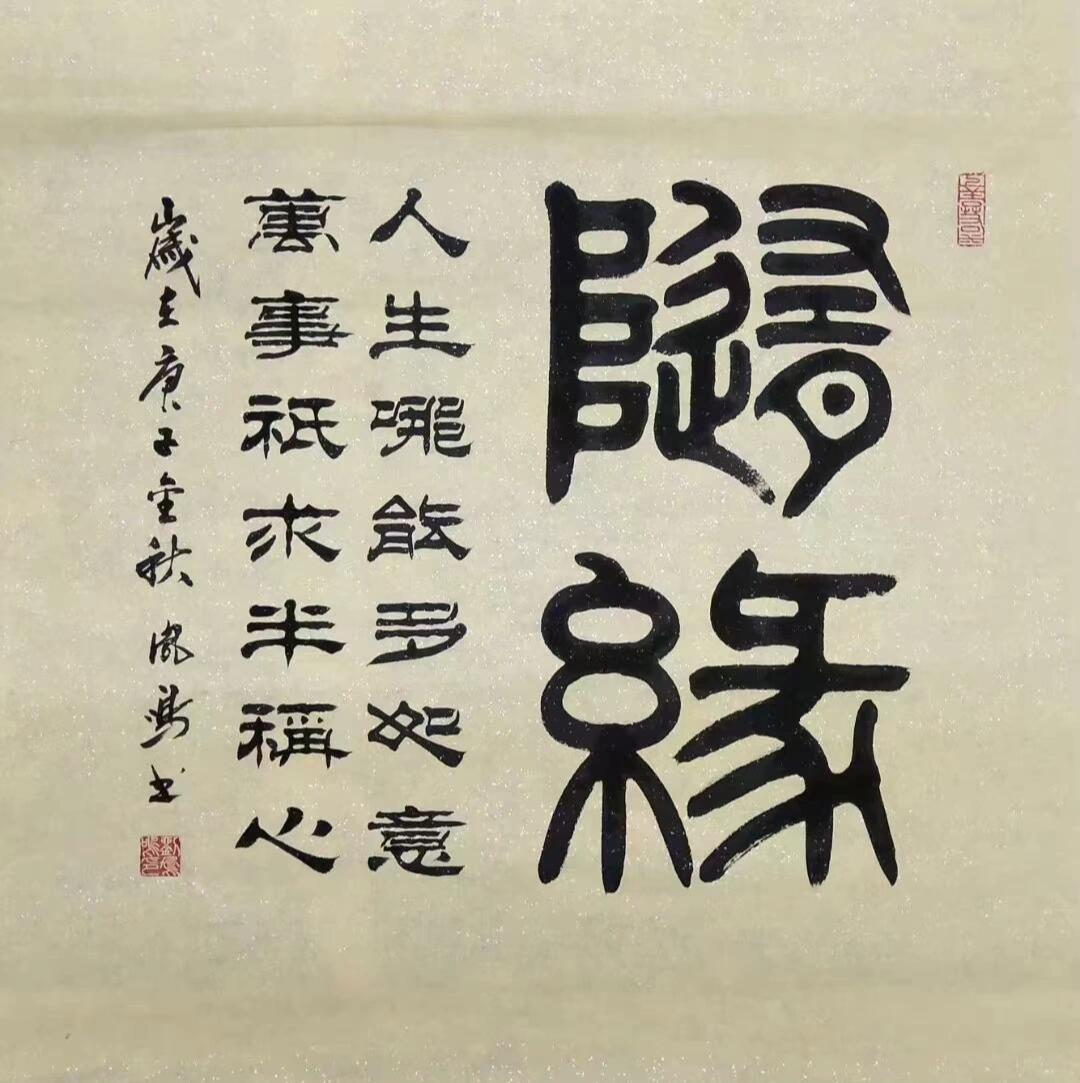 隨緣
人生哪能多如意
萬事祇求半稱心
歲在庚子金秋
書